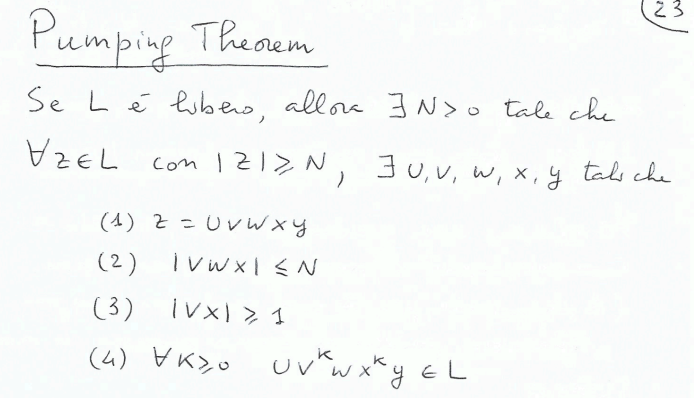 23
Pumping Theorem
Se L è libero, allora ∃ N>0 tale che
∀z∈L con |z|⩾N, ∃ u,v,w,x,y tali che
(1) z = uvwxy
(2) |vwx| ≤ N
(3) |vx| ⩾ 1
(4) ∀k⩾0 uvᵏwxᵏy ∈ L